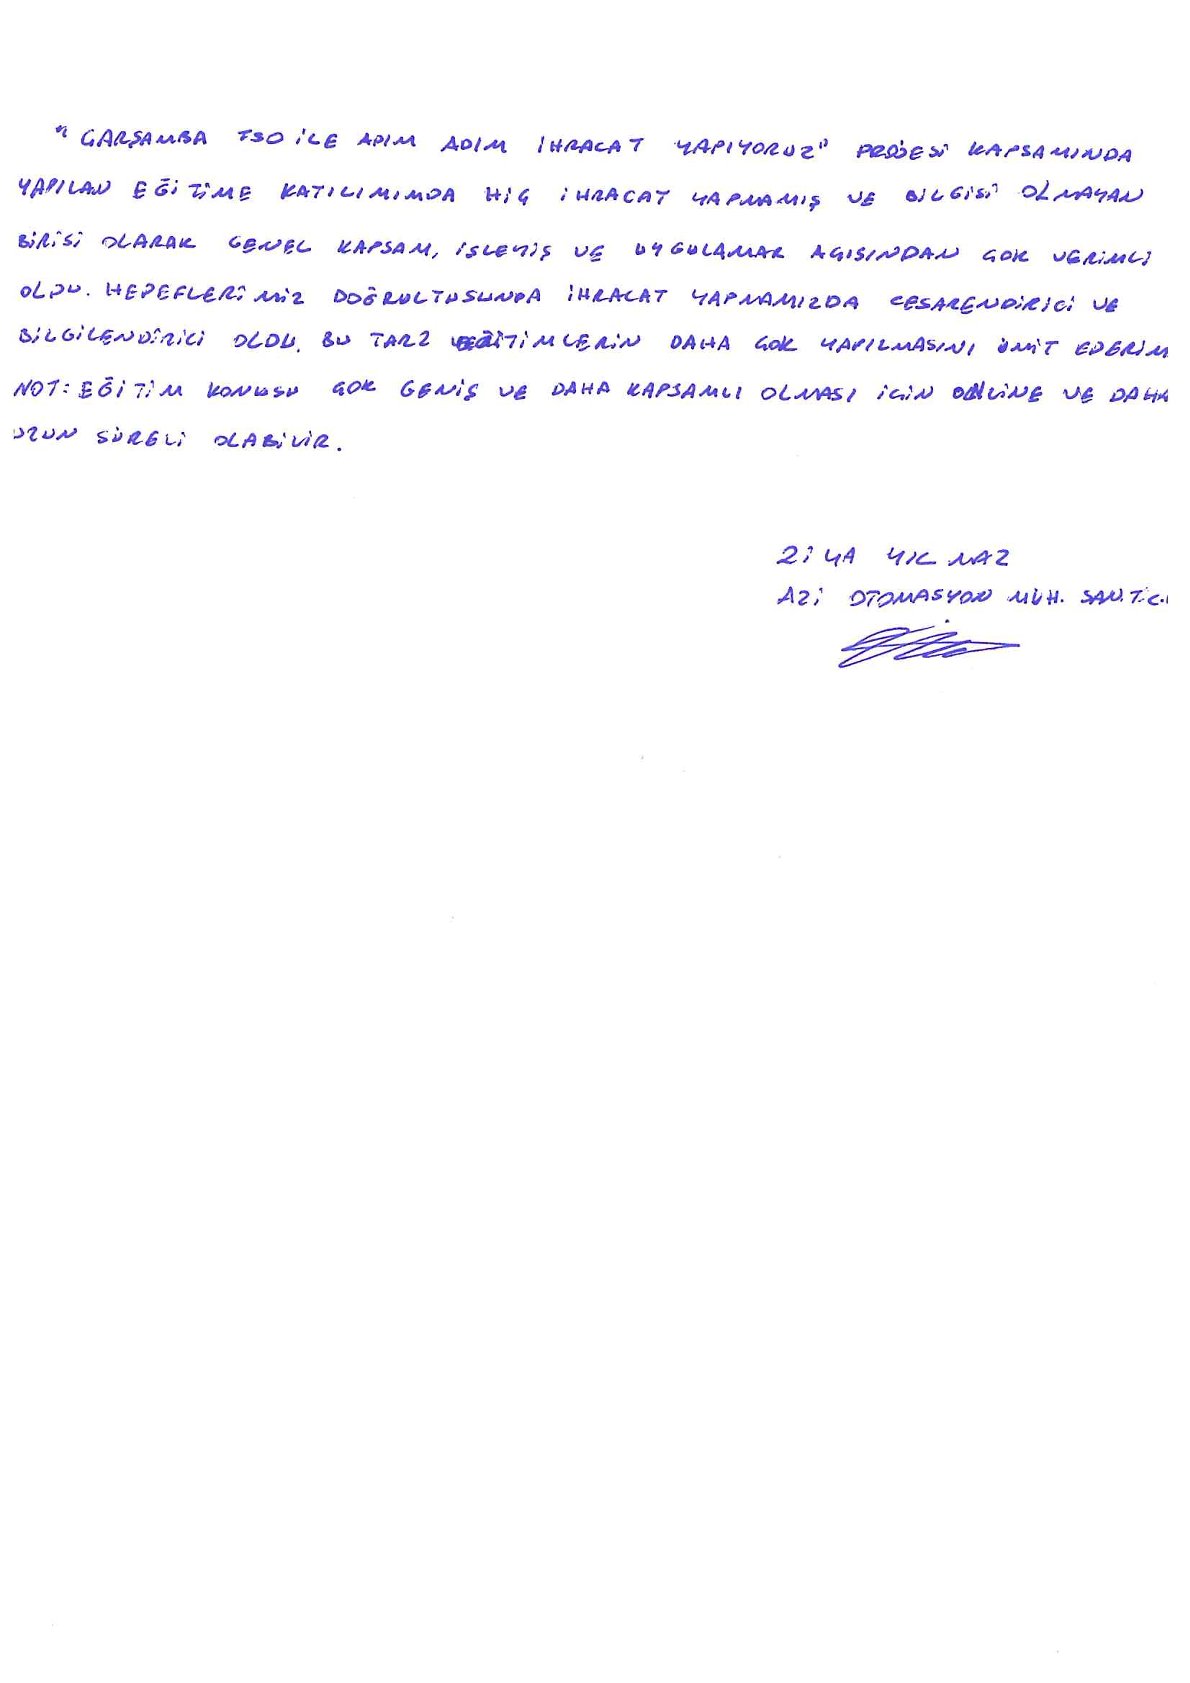 "ÇARŞAMBA TSO İLE ADIM ADIM İHRACAT YAPIYORUZ" PROJESİ KAPSAMINDA
YAPILAN EĞİTİME KATILIMIMDA HİÇ İHRACAT YAPMAMIŞ VE BİLGİSİ OLMAYAN
BİRİSİ OLARAK GENEL KAPSAM, İŞLEYİŞ VE UYGULAMAK AÇISINDAN ÇOK VERİMLİ
OLDU. HEDEFLERİMİZ DOĞRULTUSUNDA İHRACAT YAPMAMIZDA CESARENDİRİCİ VE
BİLGİLENDİRİCİ OLDU. BU TARZ EĞİTİMLERİN DAHA ÇOK YAPILMASINI ÜMİT EDERİM
NOT: EĞİTİM KONUSU ÇOK GENİŞ VE DAHA KAPSAMLI OLMASI İÇİN ONLİNE VE DAHA
UZUN SÜRELİ OLABİLİR.
ZİYA YILMAZ
AZİ OTOMASYON MÜH. SAN. TİC.